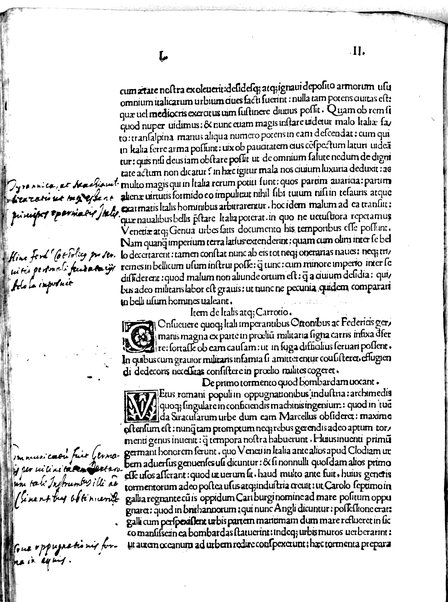 L II.
cum ætate nostra exoleverit: desidesq; atq; ignavi deposito armorum usu
omnium italicarum urbium cives facti fuerint: nulla tam potens civitas est:
quæ vel mediocris exercitus vim sustinere diutius possit. Quam ob rem si
quod nuper vidimus: & nunc etiam magis instare videtur malo Italiæ fa-
to: transalpina manus aliqua numero potens in eam descendat: cum qui
in Italia ferre arma possunt: vix ob paucitatem eius conspectum laturi videā
tur: quis nisi deus iam obstare possit ut de omnium salute nedum de digni
tate actum non dicatur? in hæc igitur mala nos civium luxuria deduxit: ac
multo magis qui in Italia rerum potiti sunt: quos partim avaritia: partim
alienæ virtutis formido eo impulit nihil sibi tutum nisi in tesauris atque
ex armatis Italis hominibus arbitrarentur. hoc idem malum ad ea transiit:
quæ navalibus bellis præstare Italia poterat. in quo ne vetustiora repetamus
Venetiæ atq; Genua urbes satis documento his temporibus esse possint.
Nam quanq; imperium terra latius extenderint: quam cum olim inter se bel
lo decertarent: tamen constat nunc ab eis tot neq; onerarias naves: neq; tri-
remes in bellicum usum instrui posse: q̄ tunc: cum minore imperio inter se
dimicarent: quod malum non aliunde ortum est: q̄ a civium desidia: qui-
bus adeo militaris labor est gravis: ut nunc ne pecunia quidem comparari
in belli usum homines valeant.
Item de Italis atq; Carrotio.
COnsuevere quoq; Itali imperantibus Ottonibus ac Federicis ger
manis magna ex parte in prœlium militaria signa carris infixa de
ferre: fortasse ob eam causam: ut in fuga difficilius fervari possent.
In quibus cum gravior militaris infamia si amitterentur consisteret, effugien
di dedecoris necessitas consistere in prœlio milites cogeret.
De primo tormento quod bombardam vocant.
VEtus romani populi in oppugnationibus industria: archimedis
quoq; singulare in conficiendis machinis ingenium: quod in tuē
da Siracularum urbe dum eam Marcellus obsideret: maxime
ostensum est: nunq̄ tam promptum neq; rebus gerendis adeo aptum tor-
menti genus invenit: q̄ tempora nostra habuerunt. Huius inventi primū
germani honorem ferunt. quo Veneti in Italia ante alios apud Clodiam ur
bem adversus genuenses usi dicuntur: & si nonnulli quosdam alios primo
esse usos asserant: quod ut verum sit. haud multo ante fuit. huius generis
tormentorum adeo postea usus atq; industria crevit: ut Carolo septimo in
gallia regnante cū is oppidum Cari burgi nomine ad mare positum oppu
gnaret: quod in brithannorum: qui nunc Angli dicuntur: possessione erat:
galli cum perspexissent urbis partem maritimam dum mare resueret in sic
co mansisse in ea bombardas statuerint: indeq; urbis muros verberarint:
ut autem oceanum ad urbem redire conspexerunt: hæc tormenta prepara